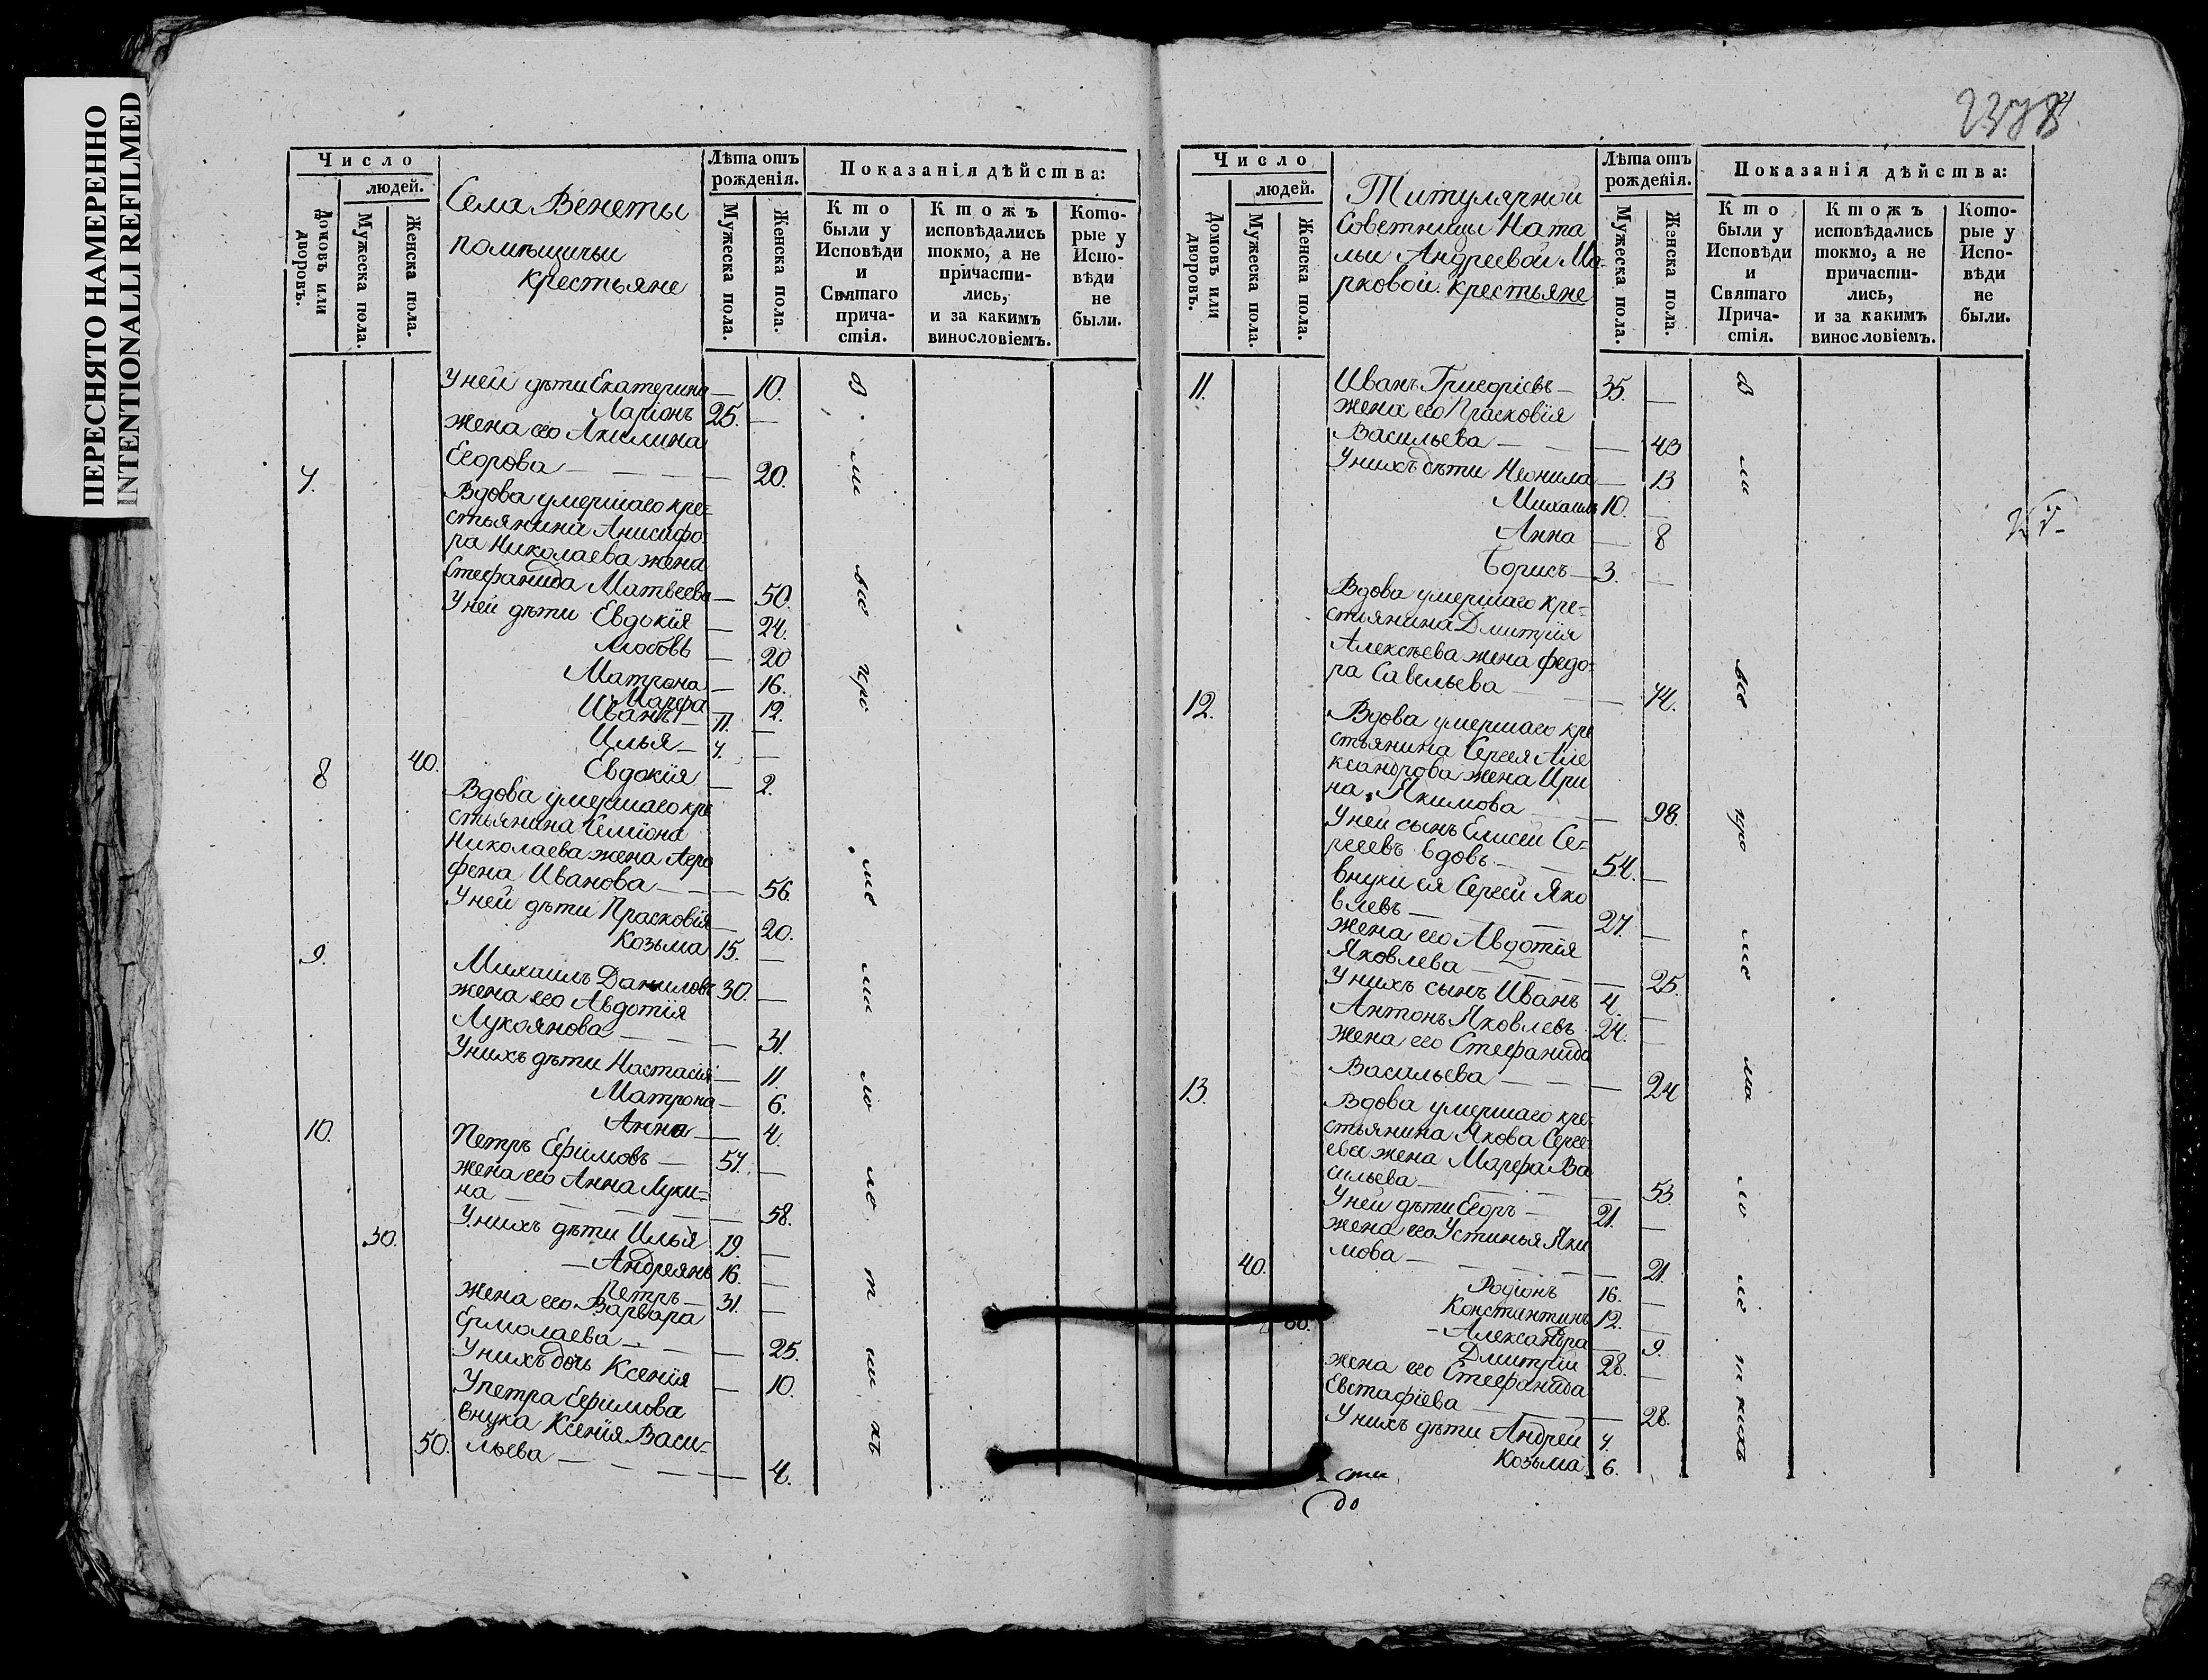 ПЕРЕСНЯТО НАМЕРЕННО
INTENTIONALLI REFILMED
Число
людей.
Домовъ или дворовъ.
Мужеска пола.
Женска пола.
Села Венеты
помѣщичьи
крестьяне
Лѣта отъ рожденія.
Мужеска пола.
Женска пола.
Показанія дѣйства:
Кто были у Исповѣди и Святаго прича- стія.
Ктожъ исповѣдались токмо, а не причасти- лись, и за какимъ винословіемъ.
Кото- рые у Испо- вѣди не были.
У ней дѣти Екатерина — 10.
Ларіонъ 25. —
жена его Акилина
Егорова — 20.
7.
Вдова умершаго кре=
стьянина Анисифо
ра Николаева жена
Стефанида Матвеева — 50.
У ней дѣти Евдокія — 24.
Любовь — 20
Матрона — 16.
Марфа — 12.
Иванъ — 11. —
Илья — 7. —
40. Евдокія — 2.
8
Вдова умершаго кре
стьянина Семіона
Николаева жена Агра
фена Иванова — 56.
У ней дѣти Прасковія — 20.
Козьма 15. —
9.
Михаилъ Даниловъ 30. —
жена его Авдотія
Лукоянова — 31.
У нихъ дѣти Настасія — 11.
Матрона — 6.
Анна — 4.
10.
Петръ Ефимовъ — 57. —
жена его Анна Луки=
на — 58.
30. У нихъ дѣти Илья 19. —
— Андреянъ 16. —
Петръ — 31. —
жена его Варвара
Ермолаева — 25.
У нихъ дочь Ксенія — 10.
У Петра Ефимова
внука Ксенія Васи=
50. льева — 4.
Число
людей.
Домовъ или дворовъ.
Мужеска пола.
Женска пола.
Титулярной
Советницы Ната
льи Андреевой Ма-
рковой крестьяне
Лѣта отъ рожденія.
Мужеска пола.
Женска пола.
Показанія дѣйства:
Кто были у Исповѣди и Святаго Прича- стія.
Ктожъ исповѣдались токмо, а не причасти- лись, и за какимъ винословіемъ.
Кото- рые у Испо- вѣди не были.
11. Иванъ Григоріевъ — 35. —
жена его Прасковія
Васильева — 43
У нихъ дѣти Неонила — 13
Михаилъ 10. —
Анна — 8
Борисъ — 3. —
Вдова умершаго кре=
стьянина Дмитрія
Алексѣева жена Федо
ра Савельева — 74.
12.
Вдова умершаго кре
стьянина Сергея Але
ксандрова жена Ири
на Якимова — 98.
У ней сынъ Елисей Се=
ргеевъ вдовъ — 54. —
внуки ея Сергей Яко
влевъ — 27. —
жена его Авдотія
Яковлева — 25.
У нихъ сынъ Иванъ 4. —
Антонъ Яковлевъ 24. —
жена его Стефанида
Васильева — 24
13.
Вдова умершаго кре=
стьянина Якова Серге
ева жена Марфа Ва
сильева — 53
У ней дѣти Егоръ — 21. —
жена его Устинья Яки
40. мова — 21.
Родіонъ 16. —
Константинъ 12. —
60. — Александра — 9.
Дмитрій 28. —
жена его Стефанида
Евстафіева — 28.
У нихъ дѣти Андрей 7.
Козьма 6.